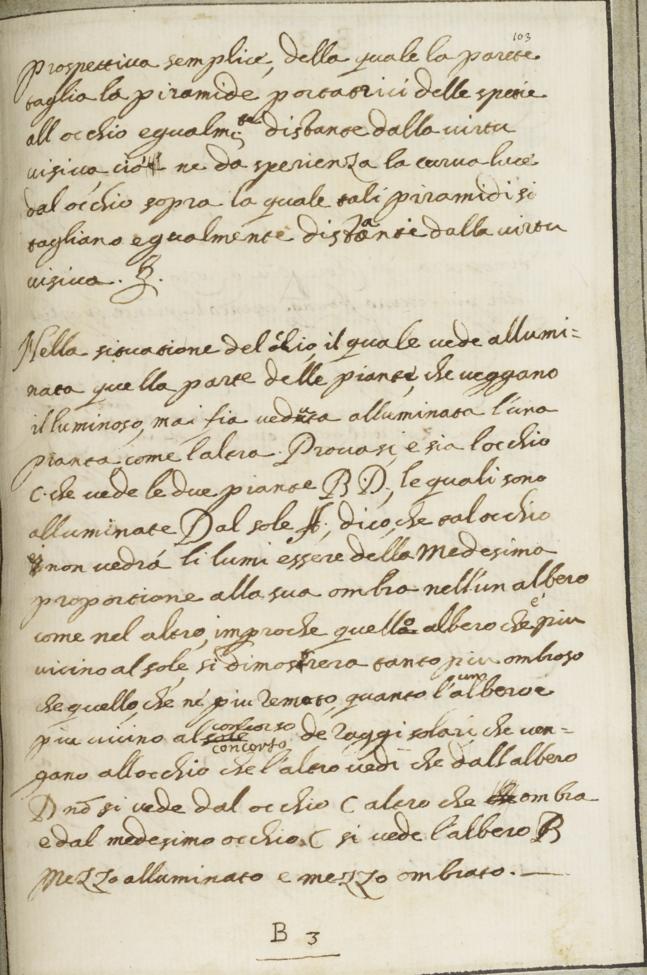 103
Prospettiva semplice, della quale la parete
taglia la piramide portatrici delle spetie
all occhio egualm.te distante dalla virtu
visiva ne da sperienza la curva luce
dal occhio sopra la quale tali piramidi si
tagliano egualmente distante dalla virtu
visiva. B.
Nella situatione del ochio, il quale vede allumi=
nata quella parte delle piante, che veggano
il luminoso, mai fia veduta alluminata l'una
pianta come l'altra. Provasi, e sia l'occhio
C. che vede le due piante B. D., le quali sono
alluminate Dal sole A., dico, che tal occhio
non vedrá li lumi essere della Medesima
proportione alla sua ombra nell'un albero
come nel altro, improche quello albero che é piu
vicino al sole, si dimostrera tanto piu ombroso
che quello che né piu remoto, quanto l'un albero é
piu vicino al sole concorso
concorso de raggi solari che ven=
gano all occhio che l'altro vedi che dall'albero
D nō si vede dal occhio C altro che ombra
e dal medesimo occhio. C si vede l'albero B
Mezzo alluminato e mezzo ombrato. —
B 3